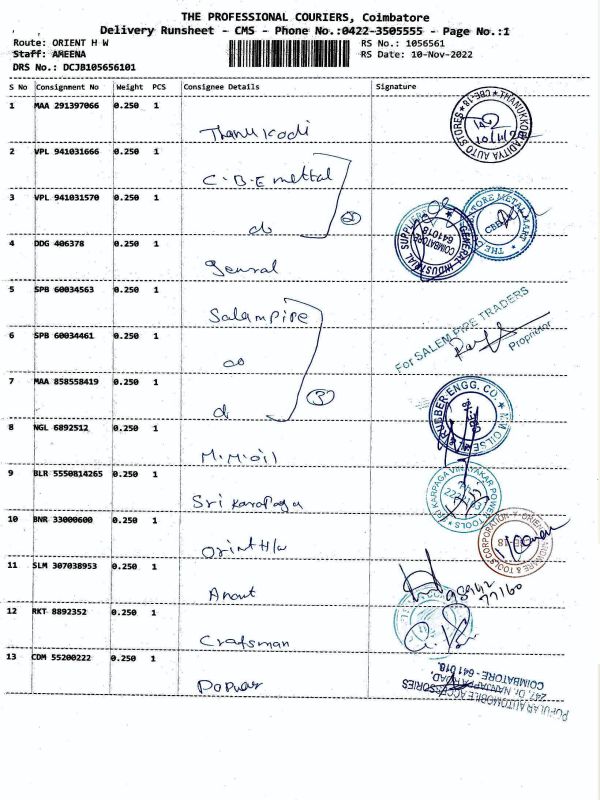 THE PROFESSIONAL COURIERS, Coimbatore
Delivery Runsheet - CMS - Phone No.:0422-3505555 - Page No.:1
Route: ORIENT H W
RS No.: 1056561
Staff: AMEENA
RS Date: 10-Nov-2022
DRS No.: DCJB105656101
S No Consignment No Weight PCS Consignee Details Signature
1 MAA 291397066 0.250 1
Thanukodi
THANUKKODI ADITYA AUTO STORES * CBE-18 *
10/11/22
2 VPL 941031666 0.250 1
C.B.E mettal
3 VPL 941031570 0.250 1
do
2
GENERAL INDUSTRIAL SUPPLIERS
COIMBATORE
641018
4 DDG 406378 0.250 1
genral
5 SPB 60034563 0.250 1
Salampipe
For SALEM PIPE TRADERS
Proprietor
6 SPB 60034461 0.250 1
do
7 MAA 858558419 0.250 1
do
3
RUBBER ENGG. CO.
8 NGL 6892512 0.250 1
M.M.oil
9 BLR 5550814265 0.250 1
Sri Karapaga
SRI KARPAGA VINAYAKAR POWER TOOLS
10 BNR 33000600 0.250 1
Orint H/w
11 SLM 307038953 0.250 1
Anout
12 RKT 8892352 0.250 1
Crafsman
13 CDM 55200222 0.250 1
Popuar
POPULAR AUTOMOBILE ACCESSORIES
247, Dr. NANJAPPA ROAD,
COIMBATORE - 641 018.